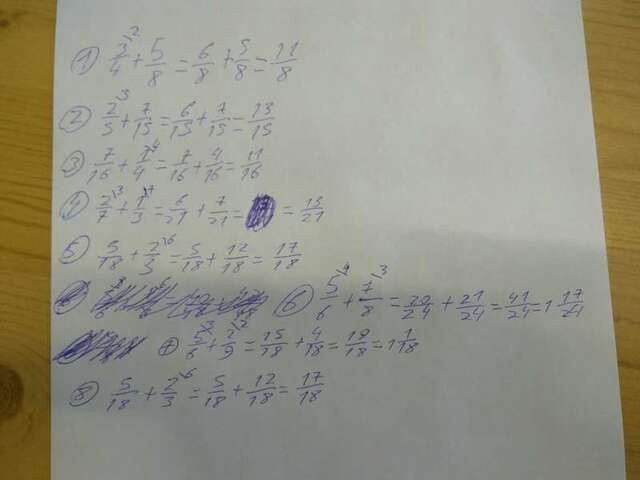 ① 3/4 \2 + 5/8 = 6/8 + 5/8 = 11/8
② 2/5 \3 + 7/15 = 6/15 + 7/15 = 13/15
③ 7/16 + 1/4 \4 = 7/16 + 4/16 = 11/16
④ 2/7 \3 + 1/3 \7 = 6/21 + 7/21 = = 13/21
⑤ 5/18 + 2/3 \6 = 5/18 + 12/18 = 17/18
⑥ 5/6 \4 + 7/8 \3 = 20/24 + 21/24 = 41/24 = 1 17/24
⑦ 5/6 \3 + 2/9 \2 = 15/18 + 4/18 = 19/18 = 1 1/18
⑧ 5/18 + 2/3 \6 = 5/18 + 12/18 = 17/18